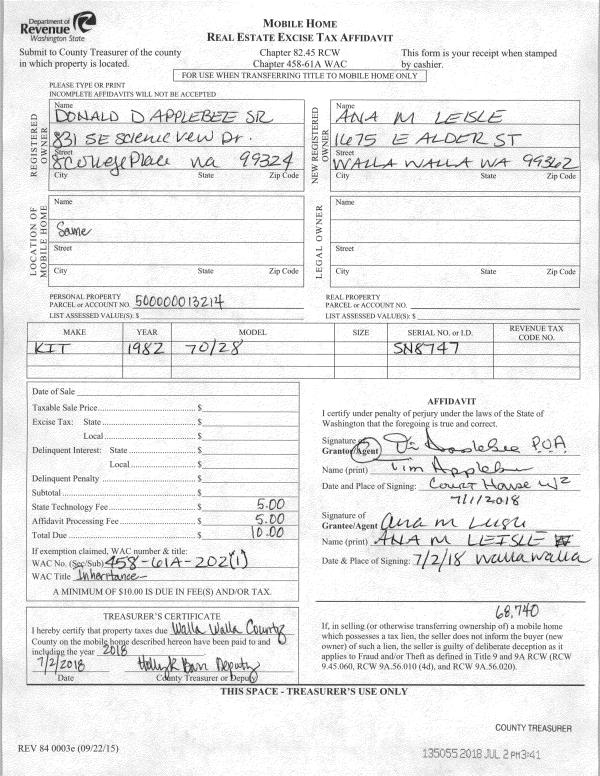 Department of
Revenue
Washington State
MOBILE HOME
REAL ESTATE EXCISE TAX AFFIDAVIT
Submit to County Treasurer of the county
in which property is located.
Chapter 82.45 RCW
Chapter 458-61A WAC
This form is your receipt when stamped
by cashier.
FOR USE WHEN TRANSFERRING TITLE TO MOBILE HOME ONLY
PLEASE TYPE OR PRINT
INCOMPLETE AFFIDAVITS WILL NOT BE ACCEPTED
REGISTERED OWNER
Name
DONALD D APPLEBEE SR
831 SE Science View Dr.
Street
College Place wa 99324
City State Zip Code
NEW REGISTERED OWNER
Name
ANA M LEISLE
1675 E ALDER ST
Street
WALLA WALLA WA 99362
City State Zip Code
LOCATION OF MOBILE HOME
Name
Same
Street
City State Zip Code
LEGAL OWNER
Name
Street
City State Zip Code
PERSONAL PROPERTY
PARCEL or ACCOUNT NO. 500000013214
LIST ASSESSED VALUE(S): $
REAL PROPERTY
PARCEL or ACCOUNT NO.
LIST ASSESSED VALUE(S): $
MAKE YEAR MODEL SIZE SERIAL NO. or I.D. REVENUE TAX CODE NO.
KIT 1982 70/28 SN8747
Date of Sale
Taxable Sale Price $
Excise Tax: State $
Local $
Delinquent Interest: State $
Local $
Delinquent Penalty $
Subtotal $
State Technology Fee $ 5.00
Affidavit Processing Fee $ 5.00
Total Due $ 10.00
If exemption claimed, WAC number & title:
WAC No. (Sec/Sub) 458-61A-202(1)
WAC Title Inheritance
A MINIMUM OF $10.00 IS DUE IN FEE(S) AND/OR TAX.
AFFIDAVIT
I certify under penalty of perjury under the laws of the State of
Washington that the foregoing is true and correct.
Signature of
Grantor/Agent Tim Applebee POA
Name (print) Tim Applebee
Date and Place of Signing: Court House W2
7/1/2018
Signature of
Grantee/Agent Ana M Leisle
Name (print) ANA M LEISLE
Date & Place of Signing: 7/2/18 walla walla
TREASURER'S CERTIFICATE
I hereby certify that property taxes due Walla Walla County
County on the mobile home described hereon have been paid to and
including the year 2018
7/2/2018 Deputy
Date County Treasurer or Deputy
68,740
If, in selling (or otherwise transferring ownership) of a mobile home
which possesses a tax lien, the seller does not inform the buyer (new
owner) of such a lien, the seller is guilty of deliberate deception as it
applies to Fraud and/or Theft as defined in Title 9 and 9A RCW (RCW
9.45.060, RCW 9A.56.010 (4d), and RCW 9A.56.020).
THIS SPACE - TREASURER'S USE ONLY
COUNTY TREASURER
REV 84 0003e (09/22/15)
135055 2018 JUL 2 PM3:41